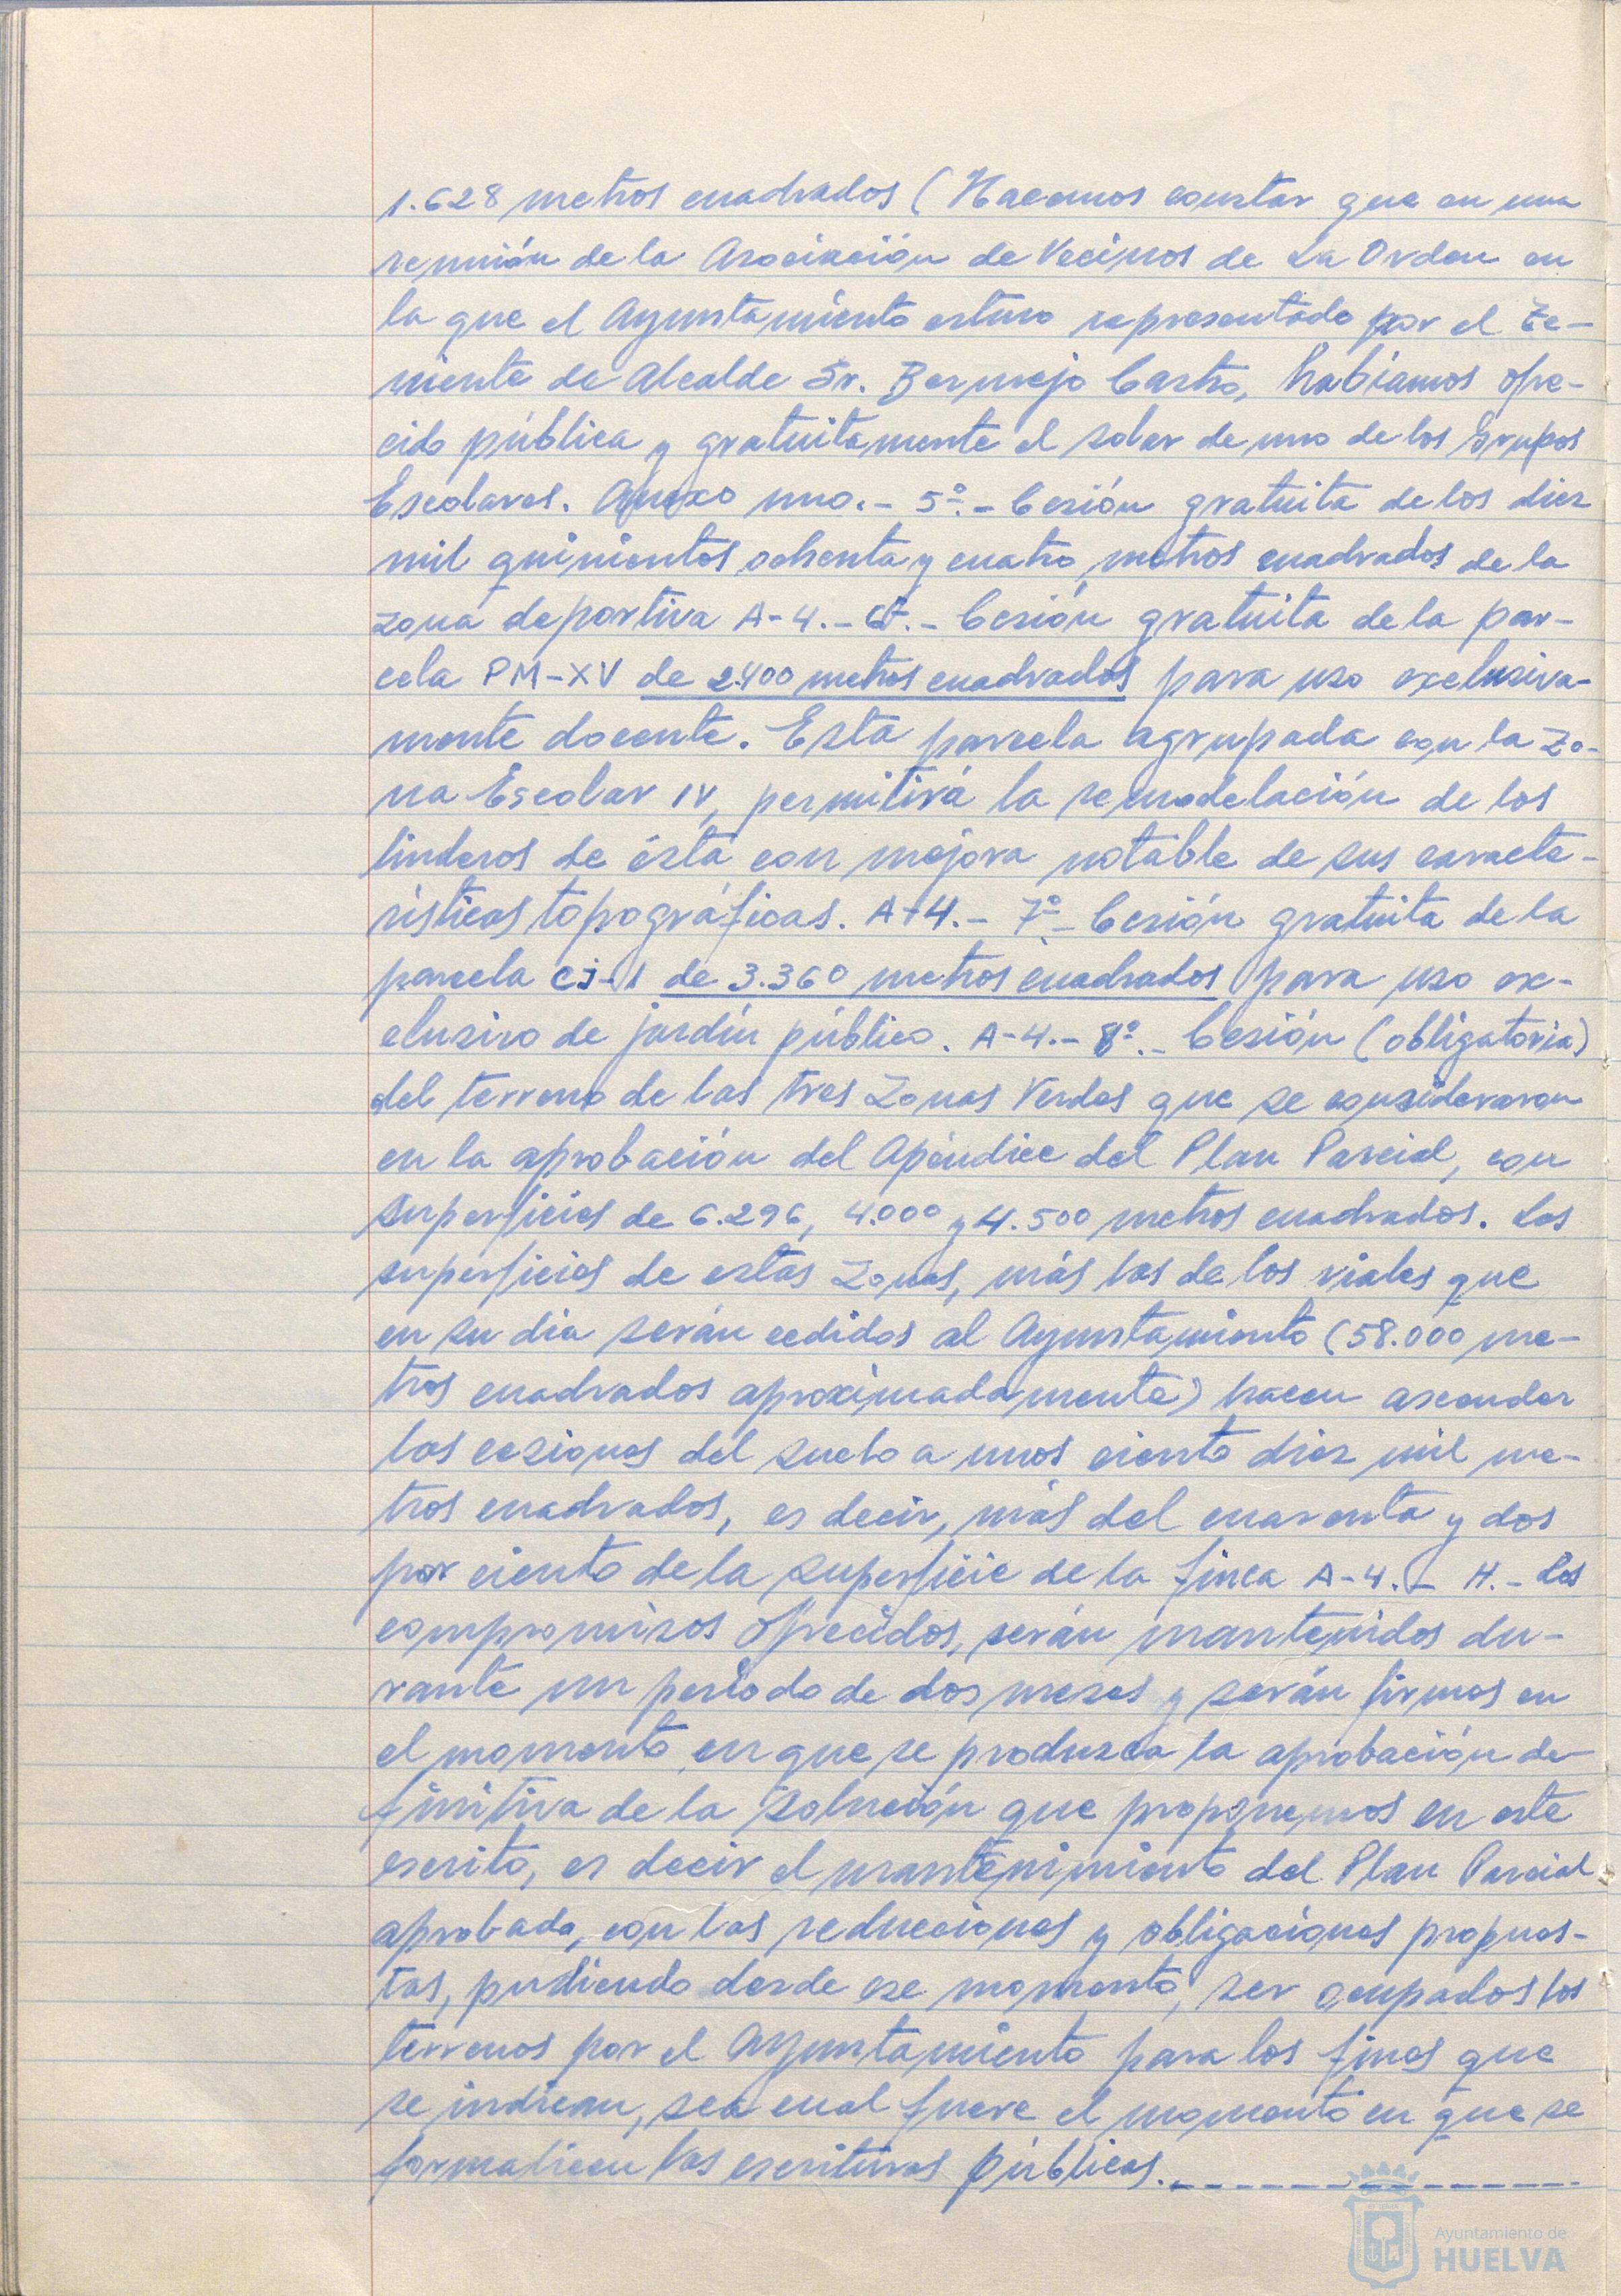 1.628 metros cuadrados (Hacemos constar que en una
reunión de la Asociación de Vecinos de La Orden en
la que el Ayuntamiento estuvo representado por el Te-
niente de Alcalde Sr. Bermejo Castro, habíamos ofre-
cido pública y gratuitamente el solar de uno de los Grupos
Escolares. Anexo uno.- 5º.- Cesión gratuita de los diez
mil quinientos ochenta y cuatro metros cuadrados de la
zona deportiva A-4.- 6º.- Cesión gratuita de la par-
cela PM-XV de 2.400 metros cuadrados para uso exclusiva-
mente docente. Esta parcela agrupada con la Zo-
na Escolar IV, permitirá la remodelación de los
linderos de ésta con mejora notable de sus caracte-
rísticas topográficas. A-4.- 7º.- Cesión gratuita de la
parcela CJ-1 de 3.360 metros cuadrados para uso ex-
clusivo de jardín público. A-4.- 8º.- Cesión (obligatoria)
del terreno de las tres Zonas Verdes que se consideraron
en la aprobación del Apéndice del Plan Parcial, con
superficies de 6.296, 4.000 y 4.500 metros cuadrados. Las
superficies de estas Zonas, más las de los viales que
en su día serán cedidos al Ayuntamiento (58.000 me-
tros cuadrados aproximadamente) hacen ascender
las cesiones del suelo a unos ciento diez mil me-
tros cuadrados, es decir, más del cuarenta y dos
por ciento de la superficie de la finca A-4.- H.- Los
compromisos ofrecidos, serán mantenidos du-
rante un período de dos meses y serán firmes en
el momento en que se produzca la aprobación de-
finitiva de la solución que proponemos en este
escrito, es decir el mantenimiento del Plan Parcial
aprobado, con las reducciones y obligaciones propues-
tas, pudiendo desde ese momento, ser ocupados los
terrenos por el Ayuntamiento para los fines que
se indican, sea cual fuere el momento en que se
formalicen las escrituras públicas.- - - - - - - - - -
Ayuntamiento de
HUELVA